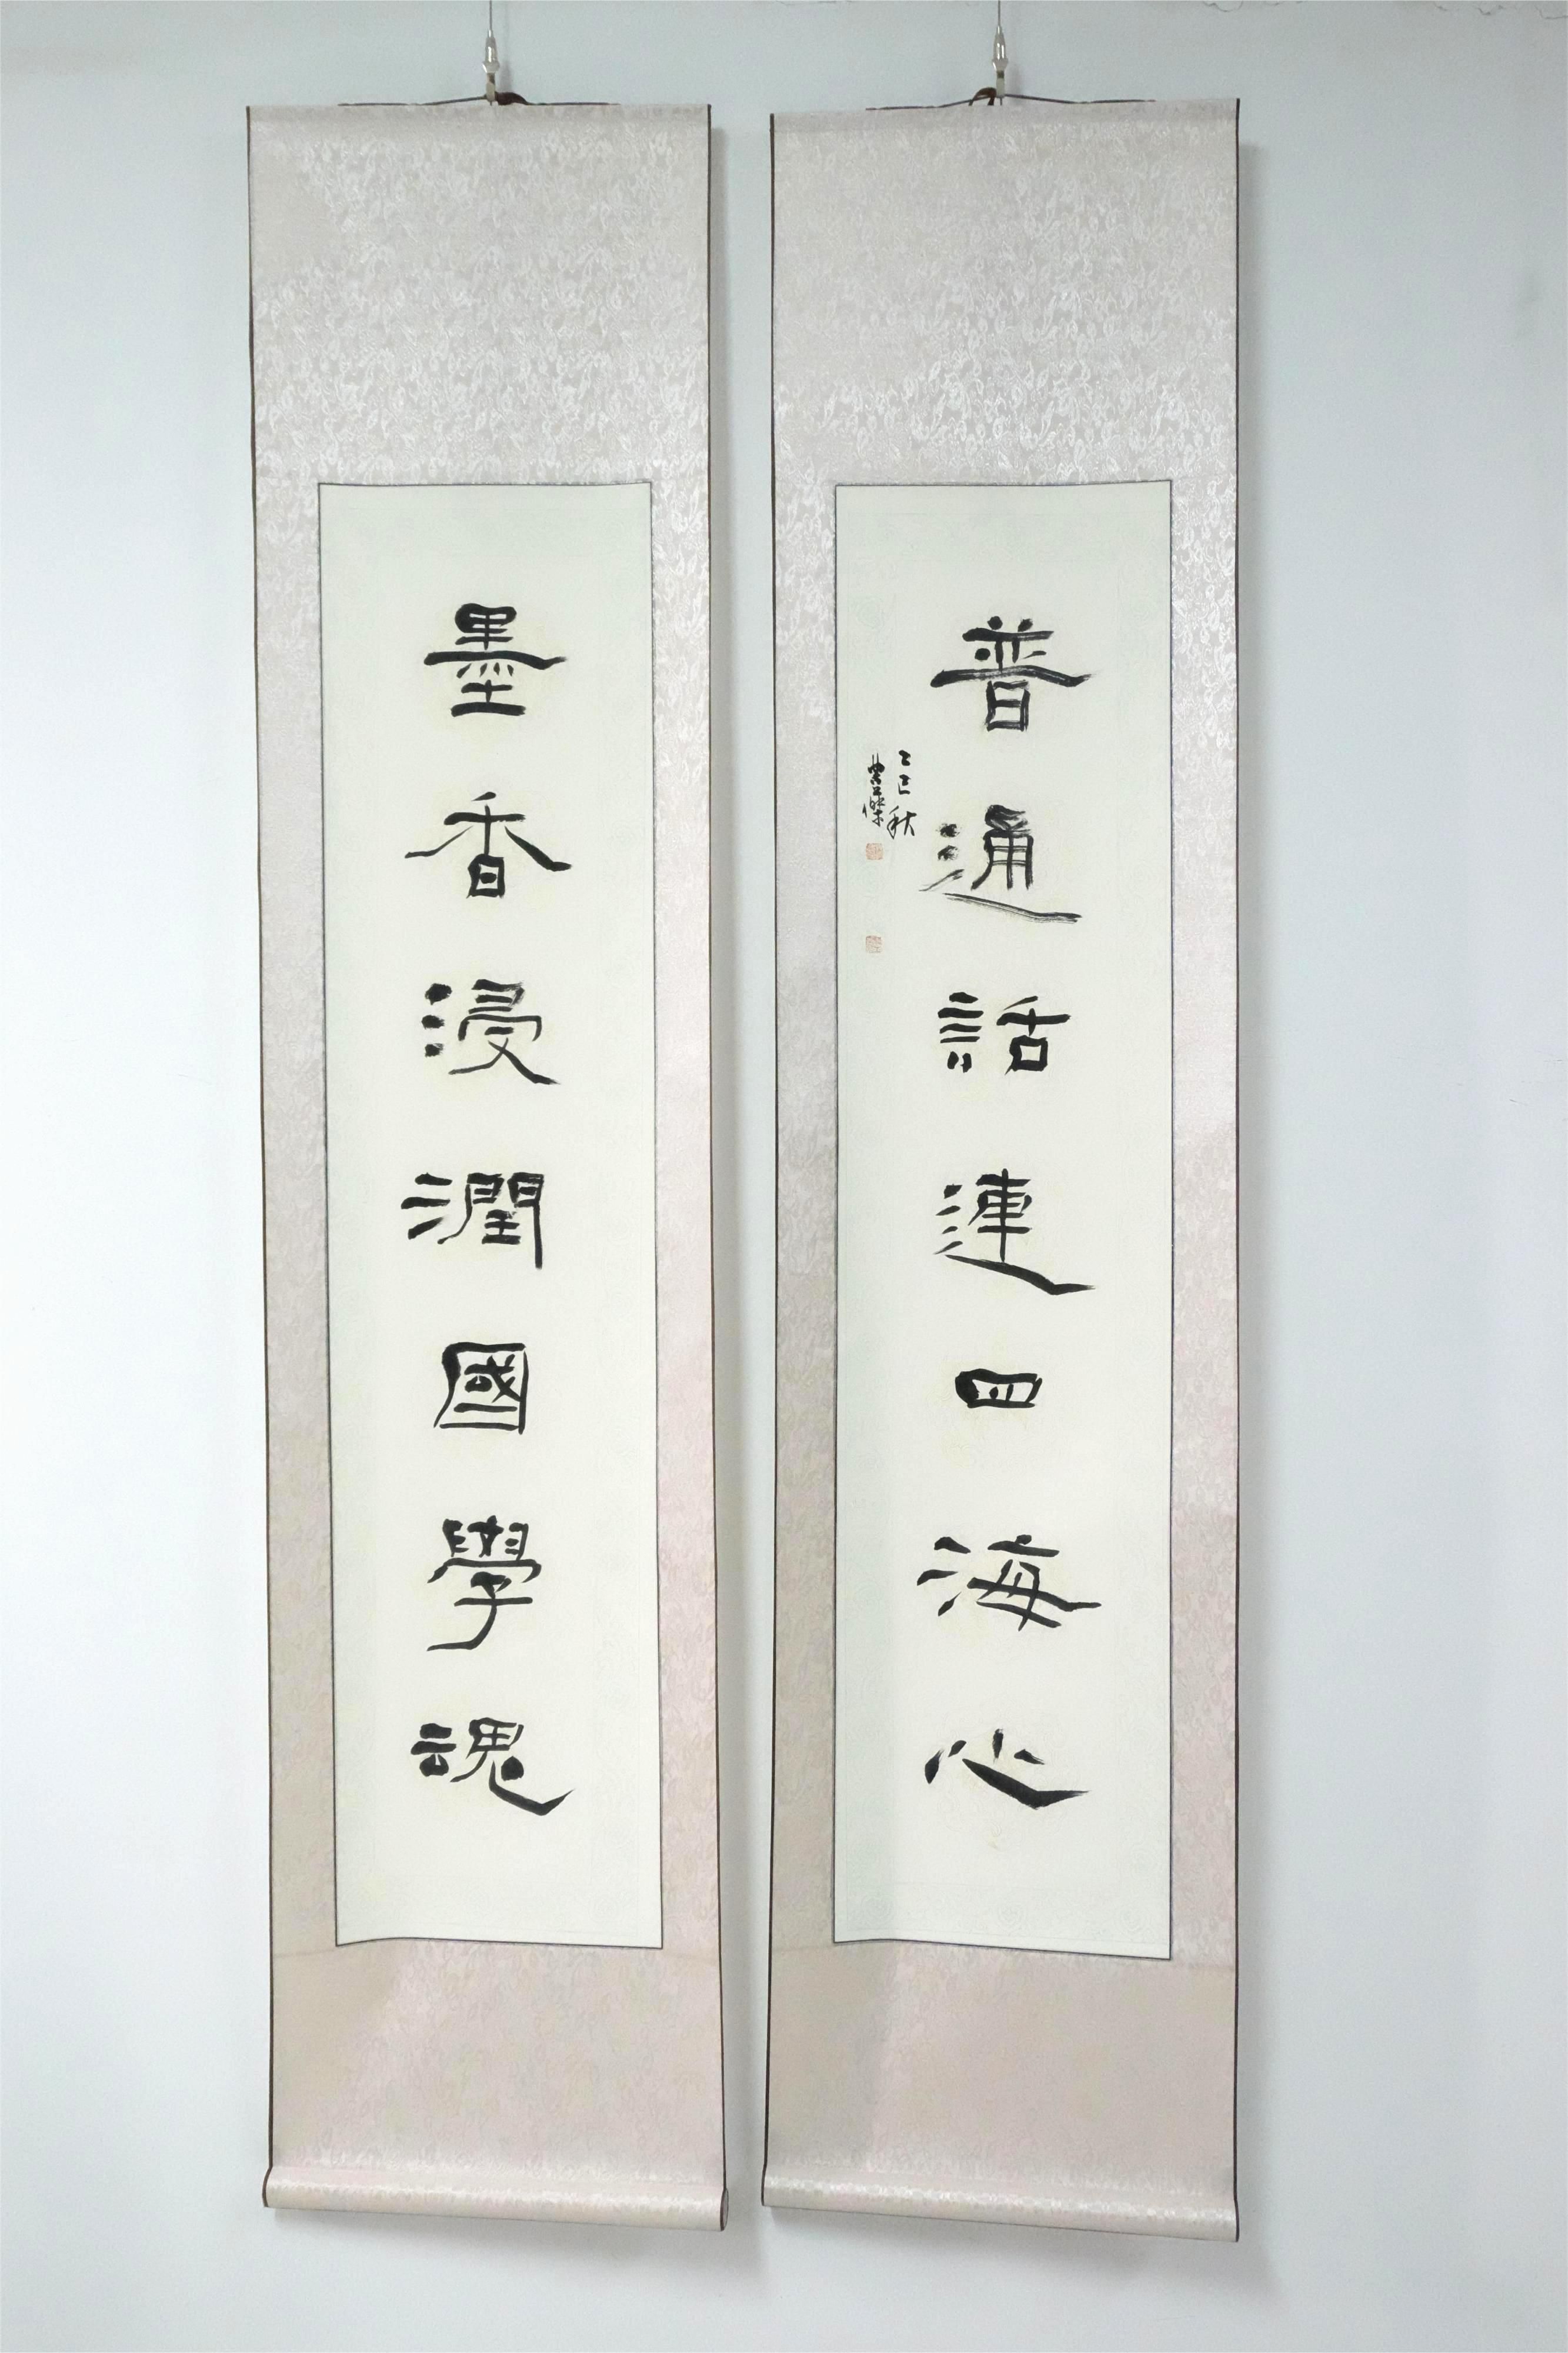 墨香浸潤國學魂
普通話連四海心
乙巳秋